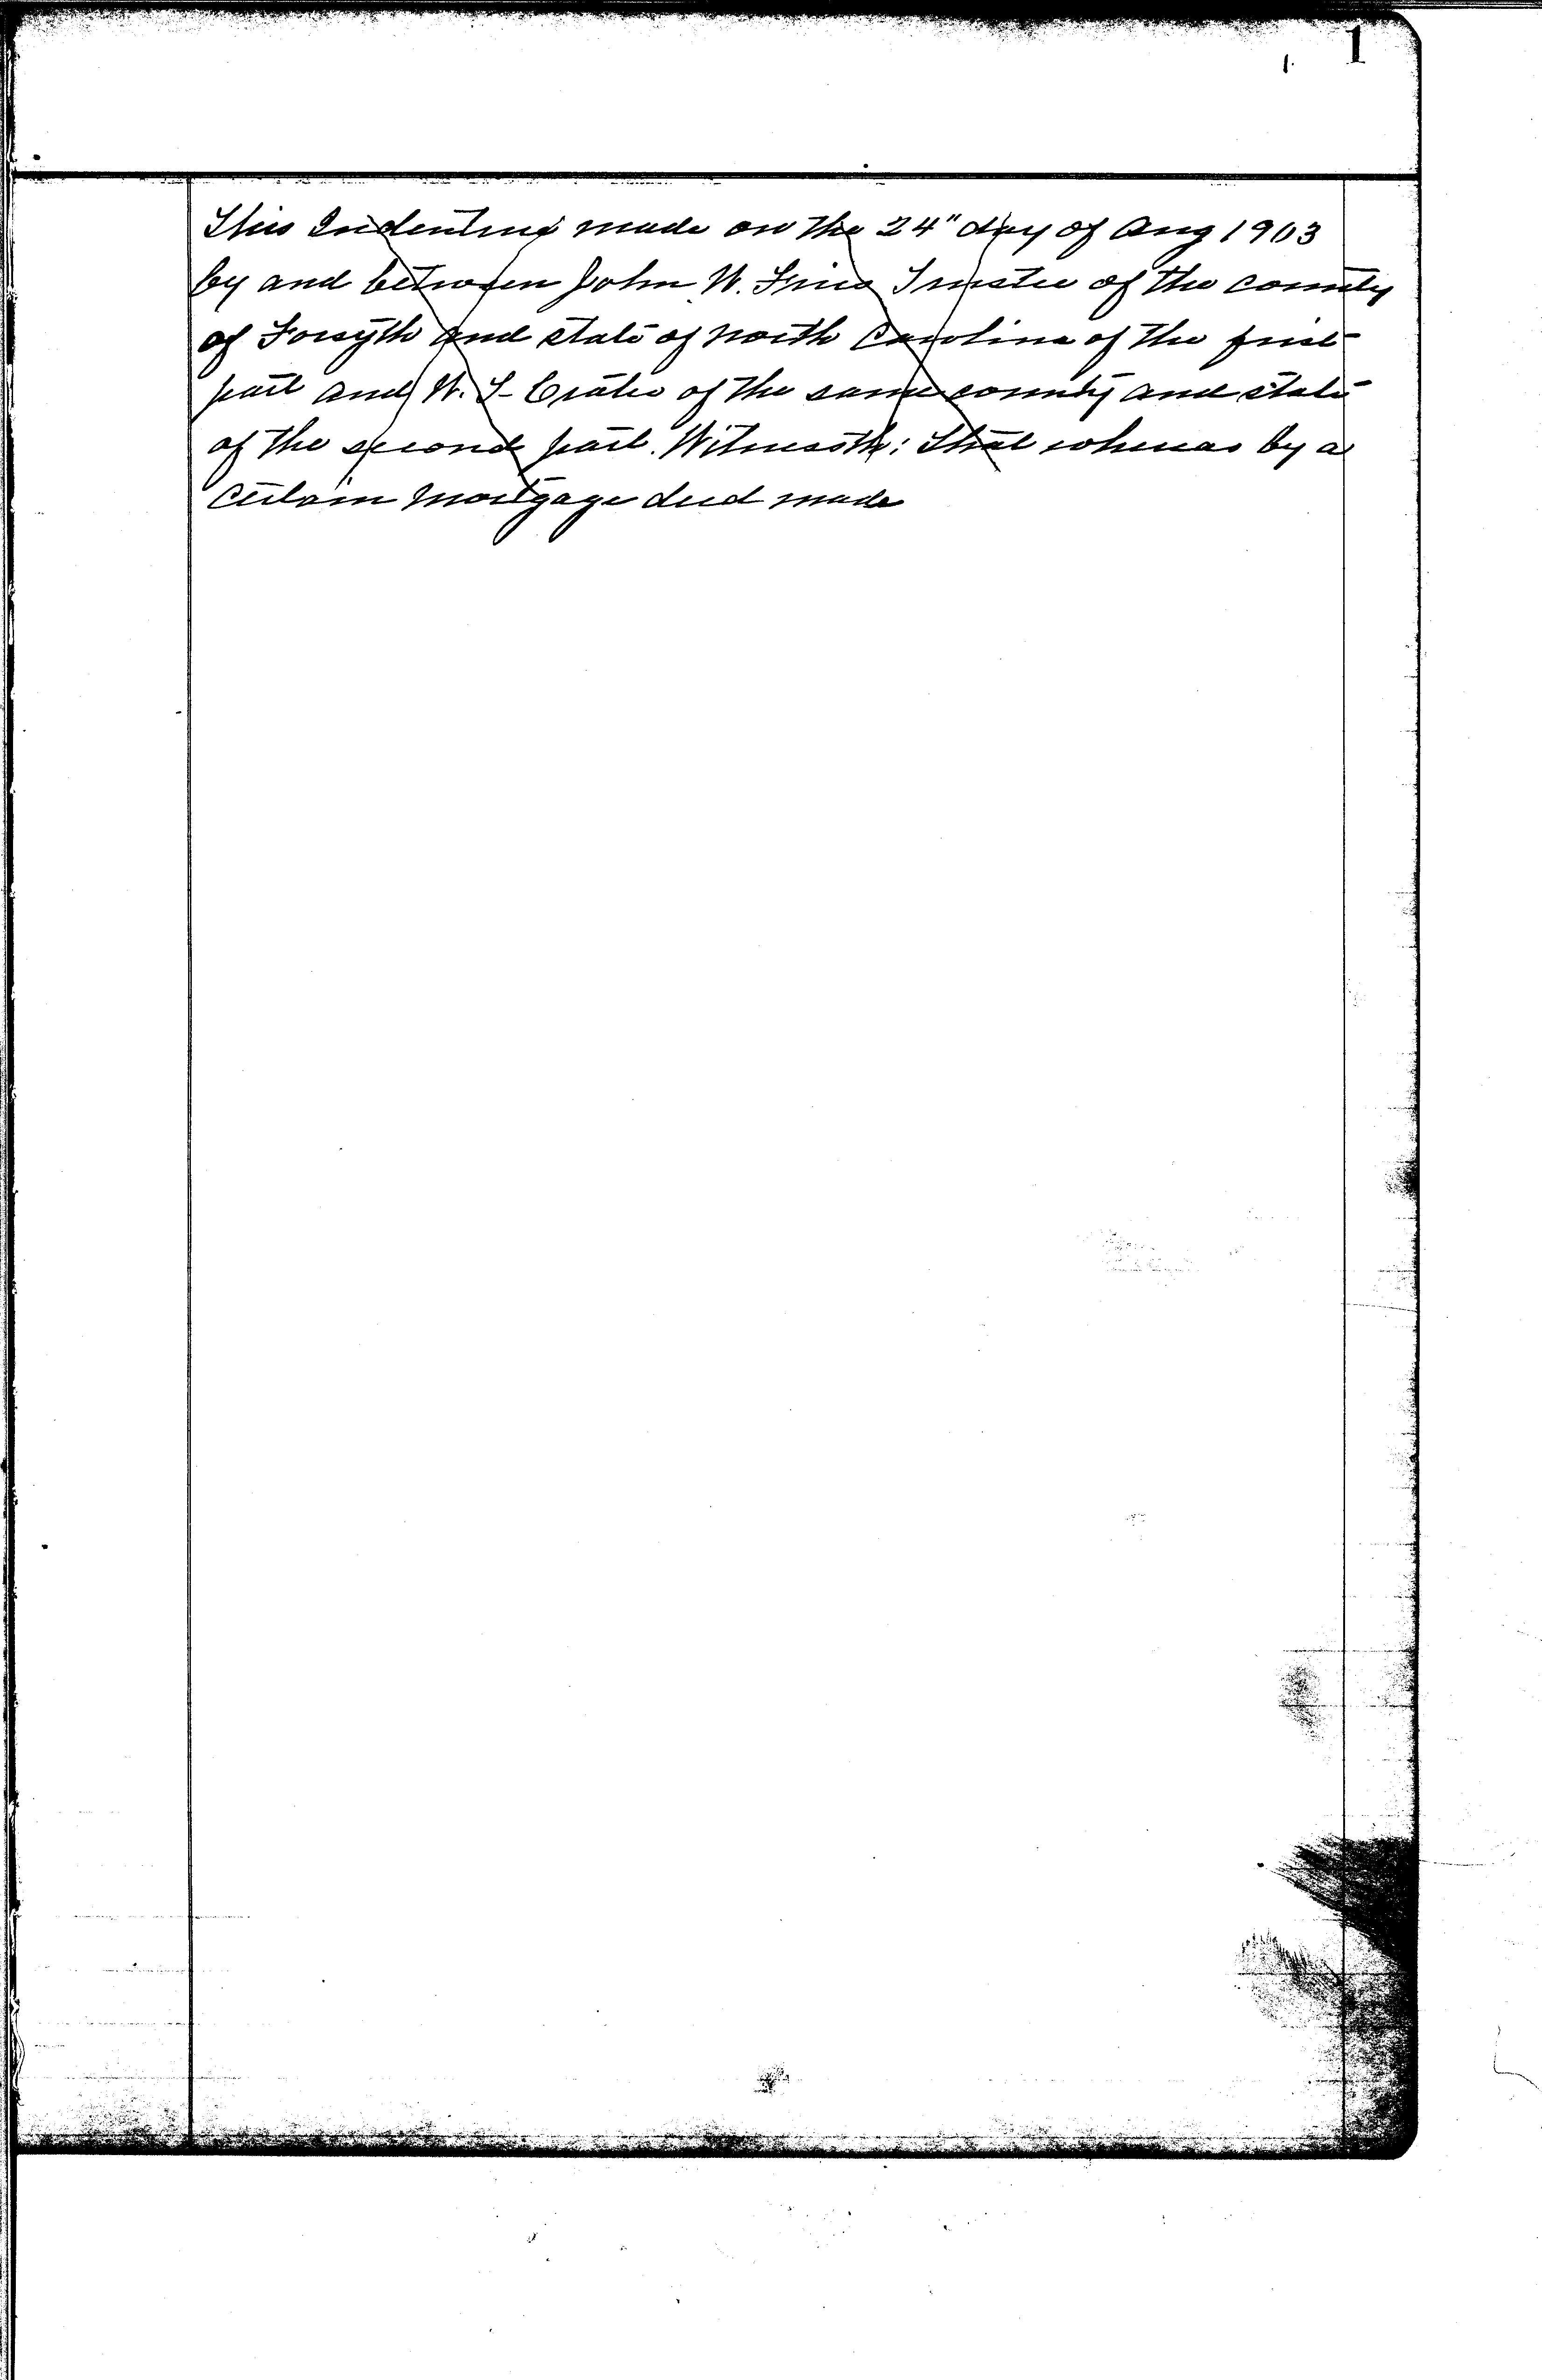 1. 1
This Indenture made on the 24" day of Aug 1903
by and between John W. Fries Trustee of the county
of Forsyth and state of North Carolina of the first
part and W. T. of the same county and state
of the second part. Witnesseth: That whereas by a
certain mortgage deed made